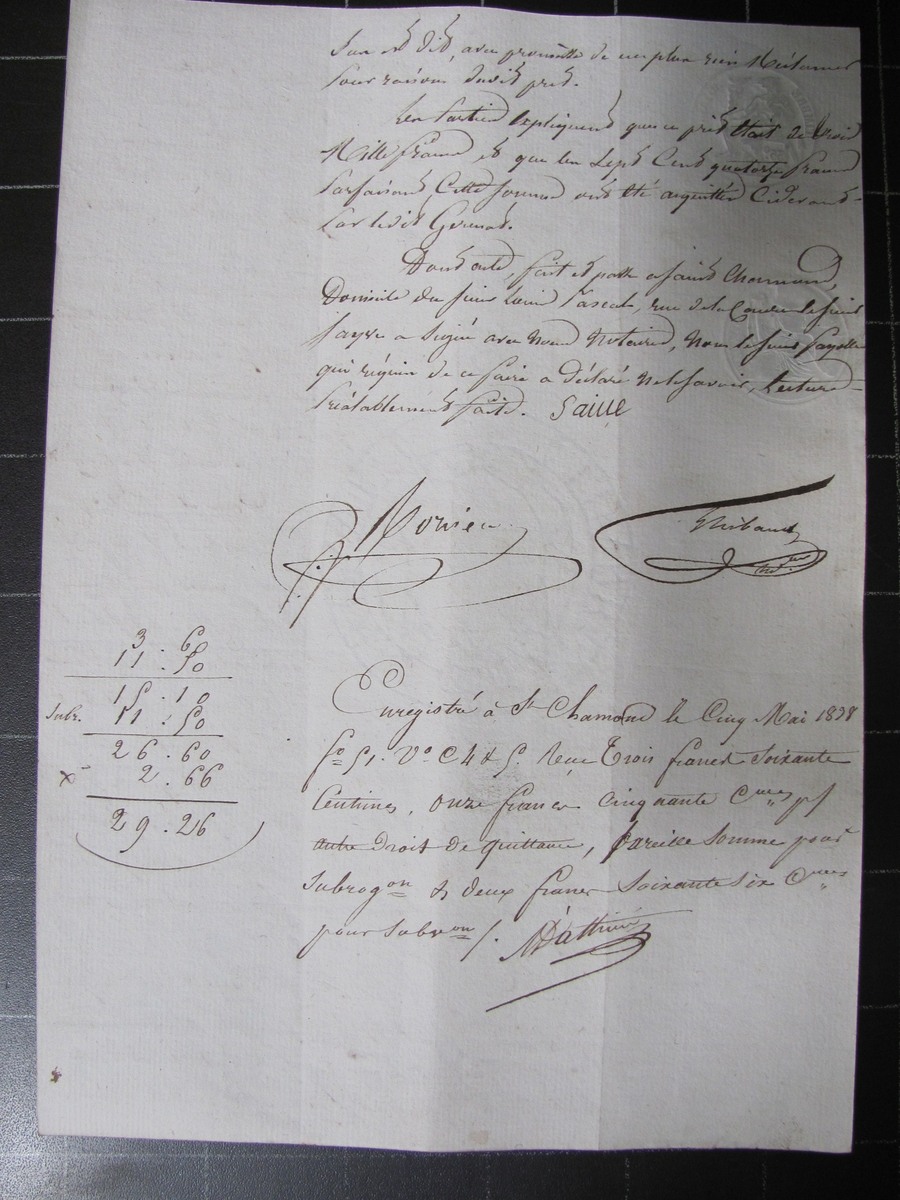 Sus est dit, avec promesse de ne plus rien réclamer
pour raison dudit prix.
Les parties expliquent que ce prix était de trois
Mille francs et que les Sept Cents quatorze francs
parfaisant Cette somme ont été acquittés
par ledit
Dont acte, fait et passé à Saint Chamond,
Domicile du sieur Louis Pascal, rue de la le sieur
Fayre a signé avec Nous Notaires, Non le sieur Fayolle
qui requis de ce faire a déclaré ne le savoir, Lecture
préalablement faite. Saiue
Thibaud
3 60
11 . 50
15 . 10
Subr. 11 . 50
26 . 60
2 . 66
29 . 26
Enregistré à St Chamond le Cinq Mai 1838
fo 51. Vo C 4 & 5. Reçu Trois francs soixante
Centimes, onze francs cinquante Cmes pr
autre droit de quittance, pareille somme pour
subrogon & deux francs soixante six Cmes
pour subvon /.